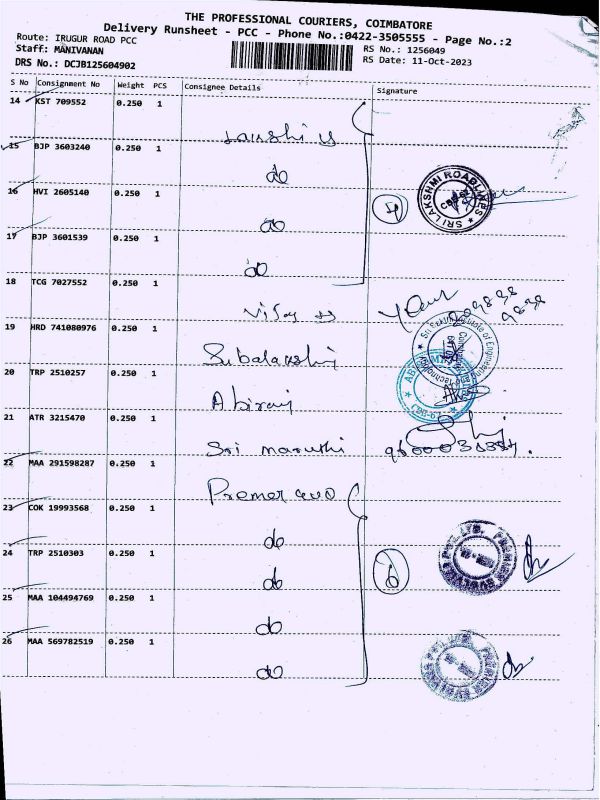 THE PROFESSIONAL COURIERS, COIMBATORE
Delivery Runsheet - PCC - Phone No.:0422-3505555 - Page No.:2
Route: IRUGUR ROAD PCC
RS No.: 1256049
Staff: MANIVANAN
RS Date: 11-Oct-2023
DRS No.: DCJB125604902
S No Consignment No Weight PCS Consignee Details Signature
14 KST 709552 0.250 1
15 BJP 3603240 0.250 1 do
16 HVI 2605140 0.250 1 do
SRI LAKSHMI ROADLINES
17 BJP 3601539 0.250 1 do
18 TCG 7027552 0.250 1 Vijay
19 HRD 741080976 0.250 1
20 TRP 2510257 0.250 1 Abirami
21 ATR 3215470 0.250 1 Sri maruthi
22 MAA 291598287 0.250 1 Premer
23 COK 19993568 0.250 1 do
24 TRP 2510303 0.250 1 do
25 MAA 104494769 0.250 1 do
26 MAA 569782519 0.250 1 do